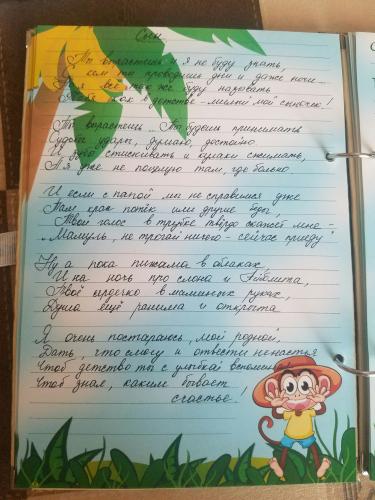 Сын
Ты вырастешь и я не буду знать,
С кем ты проводишь дни и даже ночи...
я всё так же буду называть
как в детстве - милый мой сыночек!
Ты вырастешь... Ты будешь принимать
Судьбы удары, думаю, достойно
И зубы стискивать и кулаки сжимать,
А я уже не поцелую там, где больно
И если с папой мы не справимся уже
Там кран потёк или другие беды,
Твой голос в трубке твёрдо скажет мне -
"Мамуль, не трогай ничего - сейчас приеду!
Ну а пока пижама в облаках,
И на ночь про слона и Айболита,
Твоё сердечко в маминых руках,
Душа ещё ранима и открыта
Я очень постараюсь, мой родной,
Дать, что смогу и отвести ненастья
Чтоб детство ты с улыбкой вспомин
Чтоб знал, каким бывает
счастье!